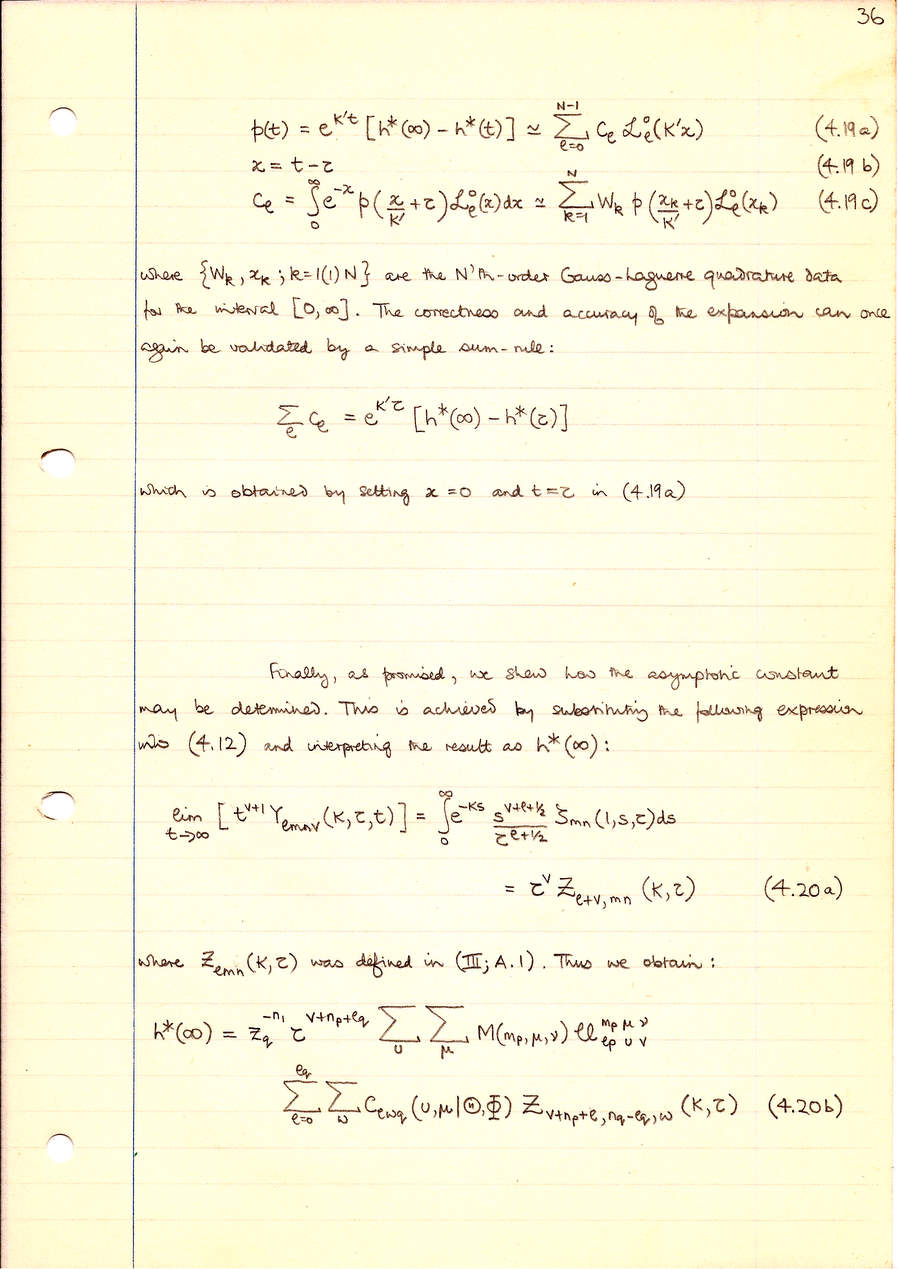 36
p(t) = e^{K't} [h*(∞) − h*(t)] ≃ ∑_{ℓ=0}^{N−1} C_ℓ ℒ_ℓ^0(K'x) (4.19a)
x = t − τ (4.19b)
C_ℓ = ∫_0^∞ e^{−x} p(x/K' + τ) ℒ_ℓ^0(x) dx ≃ ∑_{k=1}^{N} W_k p(x_k/K' + τ) ℒ_ℓ^0(x_k) (4.19c)
where {W_k, x_k ; k=1(1)N} are the N'th-order Gauss-Laguerre quadrature data
for the interval [0,∞]. The correctness and accuracy of the expansion can once
again be validated by a simple sum-rule:
∑_ℓ C_ℓ = e^{K'τ} [h*(∞) − h*(τ)]
which is obtained by setting x = 0 and t = τ in (4.19a)
Finally, as promised, we shew how the asymptotic constant
may be determined. This is achieved by substituting the following expression
into (4.12) and interpreting the result as h*(∞) :
lim_{t→∞} [t^{ν+1} Y_{ℓmnν}(K,τ,t)] = ∫_0^∞ e^{−Ks} s^{ν+ℓ+1/2}/τ^{ℓ+1/2} ζ_{mn}(1,s,τ)ds
= τ^ν Z_{ℓ+ν,mn}(K,τ) (4.20a)
where Z_{ℓmn}(K,τ) was defined in (III; A.1). Thus we obtain :
h*(∞) = z_q^{−n_1} τ^{ν+n_p+ℓ_q} ∑_υ ∑_μ M(m_p,μ,ν) 𝒰_{ℓ_p υ ν}^{m_p μ ν}
∑_{ℓ=0}^{ℓ_q} ∑_ω C_{ℓωq}(υ,μ|Θ,Φ) Z_{ν+n_p+ℓ, n_q−ℓ_q, ω}(K,τ) (4.20b)